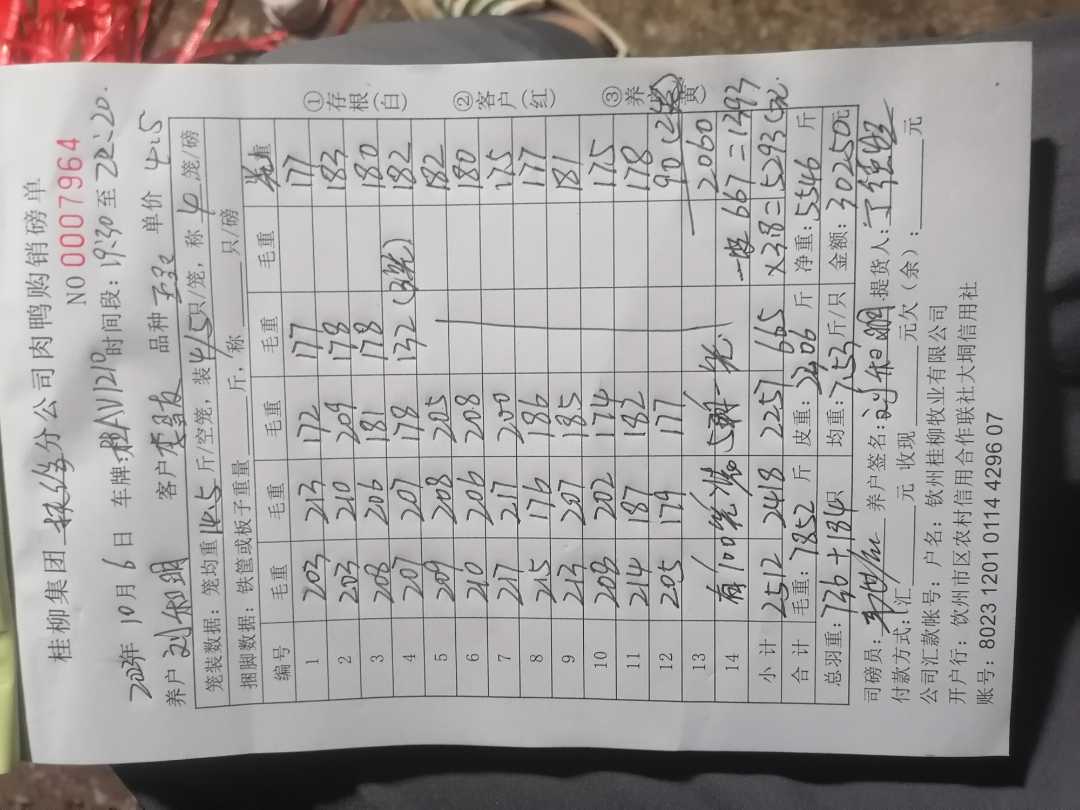 桂柳集团 分公司肉鸭购销磅单
NO 0007964
10月6日 车牌: 时间段: 19:30 至 22:20
养户 刘 明 客户 品种 单价 4.15
笼装数据: 笼均重 14.5 斤/空笼, 装 4/5 只/笼, 称 4 笼/磅
捆脚数据: 铁筐或板子重量 斤, 称 只/磅
编号 毛重 毛重 毛重 毛重 毛重 重
1 203 213 172 177 177
2 203 210 209 178 183
3 208 206 181 178 180
4 207 207 178 132 (3笼) 182
5 209 208 205 182
6 210 206 208 180
7 217 217 200 175
8 215 176 186 177
9 213 207 185 181
10 208 202 174 175
11 214 187 182 178
12 205 179 177 90
13 2060
14 有100笼装5 一笼
小计 2512 2418 2257 665 ×3.8=5293
合计 毛重: 7852 斤 皮重: 2306 斤 净重: 5546 斤
总羽重: 736+184 只 均重: 7.53 斤/只 金额: 30250 元
司磅员: 养户签名: 刘 明 提货人:
付款方式: 汇 元 收现 元欠(余): 元
公司汇款帐号: 户名: 钦州桂柳牧业有限公司
开户行: 饮州市区农村信用合作联社大垌信用社
账号: 8023 1201 0114 4296 07
①存根(白)
②客户(红)
③养 (黄)